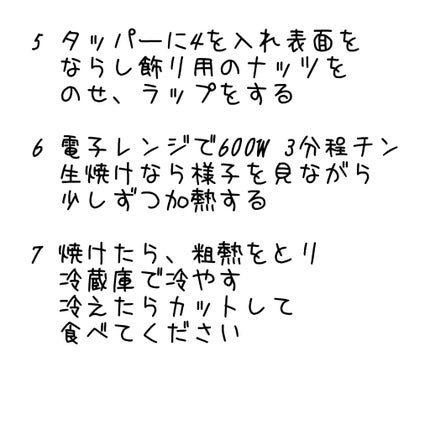 5 タッパーに4を入れ表面を
ならし飾り用のナッツを
のせ、ラップをする
6 電子レンジで600W 3分程チン
生焼けなら様子を見ながら
少しずつ加熱する
7 焼けたら、粗熱をとり
冷蔵庫で冷やす
冷えたらカットして
食べてください